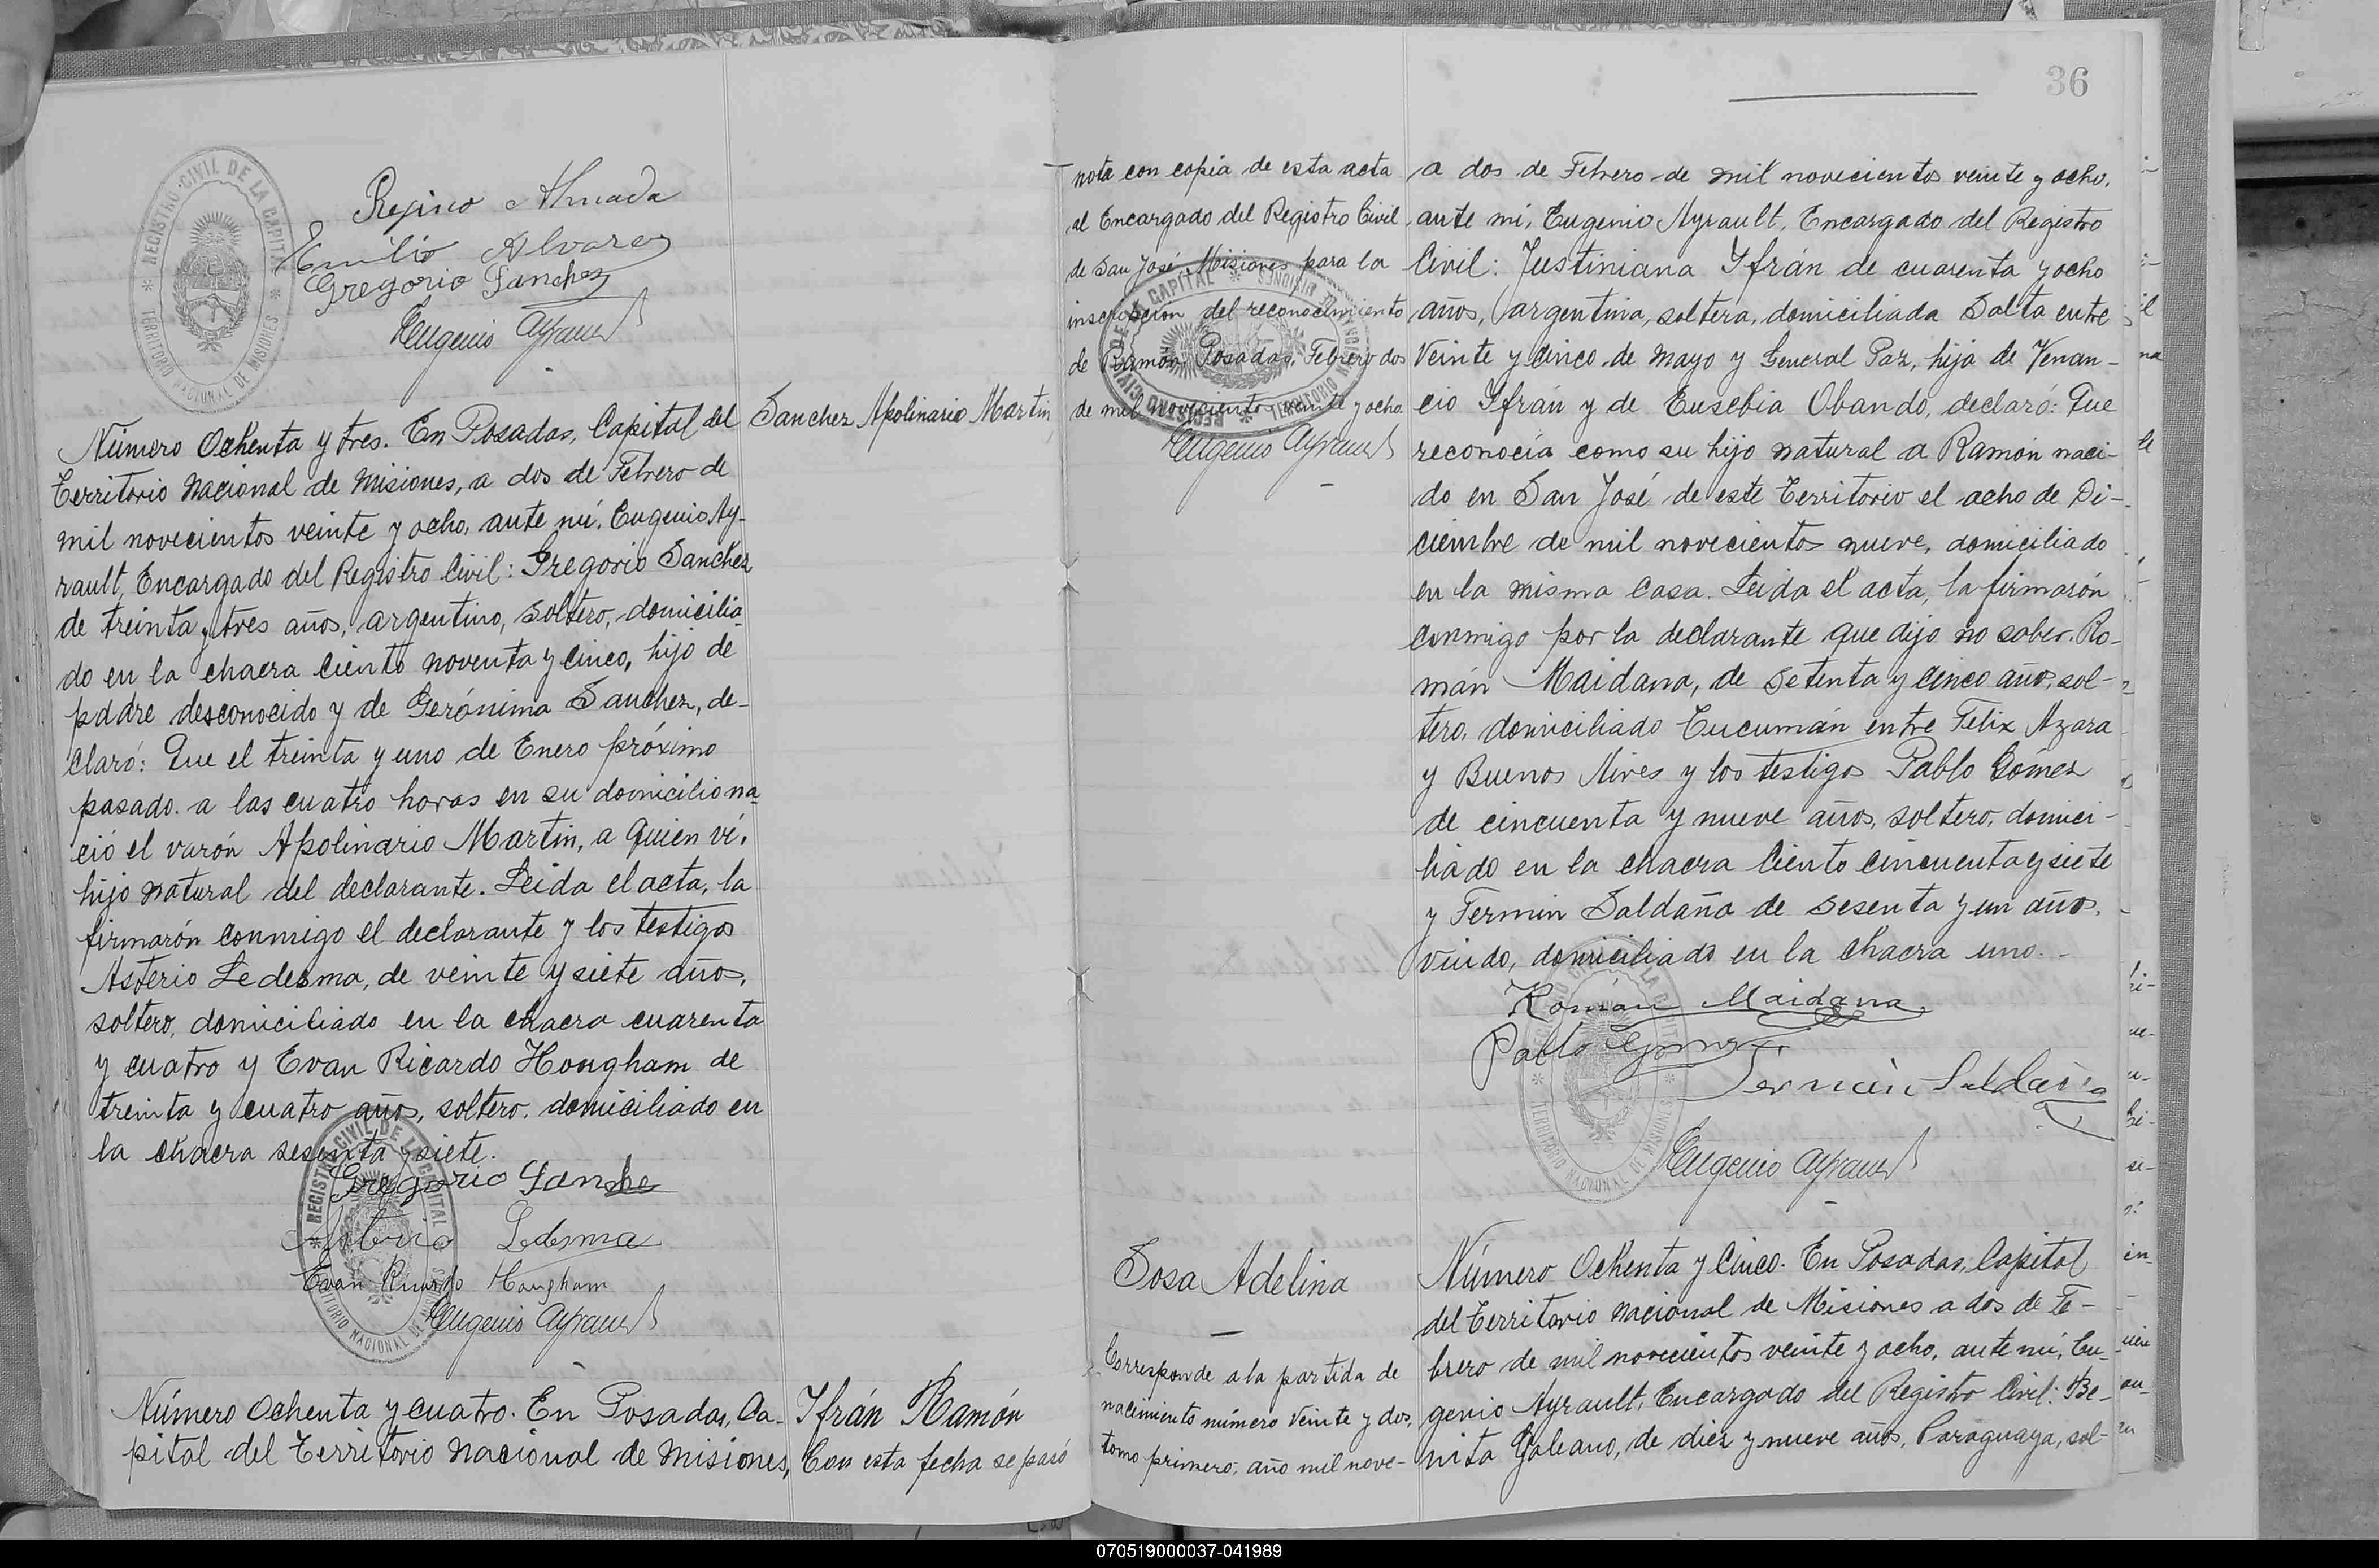 Regino Almada
Emilio Alvarez
Gregorio Sanchez
Eugenio Ayrault
REGISTRO CIVIL DE LA CAPITAL
TERRITORIO NACIONAL DE MISIONES
Sanchez Apolinario Martin
Número Ochenta y tres. En Posadas, Capital del
Territorio Nacional de Misiones, a dos de Febrero de
mil novecientos veinte y ocho, ante mí, Eugenio Ay-
rault, Encargado del Registro Civil: Gregorio Sanchez
de treinta y tres años, argentino, soltero, domicilia-
do en la chacra ciento noventa y cinco, hijo de
padre desconocido y de Gerónima Sanchez, de-
claró: Que el treinta y uno de Enero próximo
pasado a las cuatro horas en su domicilio na-
ció el varón Apolinario Martin, a quien ví,
hijo natural del declarante. Leida el acta, la
firmarón conmigo el declarante y los testigos
Asterio Ledesma, de veinte y siete años,
soltero, domiciliado en la chacra cuarenta
y cuatro y Evan Ricardo Hougham de
treinta y cuatro años, soltero, domiciliado en
la chacra sesenta y siete.
Gregorio Sanche
Asterio Ledesma
Evan Ricardo Hougham
Eugenio Ayrault
REGISTRO CIVIL DE LA CAPITAL
TERRITORIO NACIONAL DE MISIONES
Número Ochenta y cuatro. En Posadas, Ca-
pital del Territorio Nacional de Misiones,
Ifrán Ramón
Con esta fecha se pasó
36
nota con copia de esta acta
al Encargado del Registro Civil
de San José Misiones para la
inscripcion del reconocimiento
de Ramón. Posadas, Febrero dos
de mil novecientos veinte y ocho
Eugenio Ayrault
REGISTRO CIVIL DE LA CAPITAL
TERRITORIO NACIONAL DE MISIONES
a dos de Febrero de mil novecientos veinte y ocho,
ante mi, Eugenio Ayrault, Encargado del Registro
Civil: Justiniana Ifrán de cuarenta y ocho
años, argentina, soltera, domiciliada Salta entre
Veinte y cinco de Mayo y General Paz, hija de Venan-
cio Ifrán y de Eusebia Obando, declaró: Que
reconocía como su hijo natural a Ramón naci-
do en San José de este Territorio el ocho de Di-
ciembre de mil novecientos nueve, domiciliado
en la misma casa. Leida el acta, la firmarón
conmigo por la declarante que dijo no saber. Ro-
mán Maidana, de setenta y cinco años, sol-
tero, domiciliado Tucumán entre Felix Azara
y Buenos Aires y los testigos Pablo Gómez
de cincuenta y nueve años, soltero, domici-
liado en la chacra ciento cincuenta y siete
y Fermin Saldaña de sesenta y un años,
viudo, domiciliado en la chacra uno.
Román Maidana
Pablo Gomez
Fermin Saldaña
Eugenio Ayrault
TERRITORIO NACIONAL DE MISIONES
Sosa Adelina
Corresponde a la partida de
nacimiento número veinte y dos,
tomo primero, año mil nove-
Número Ochenta y Cinco. En Posadas, Capital
del Territorio Nacional de Misiones a dos de Fe-
brero de mil novecientos veinte y ocho, ante mí, Eu-
genio Ayrault, Encargado del Registro Civil: Be-
nita Galeano, de diez y nueve años, Paraguaya, sol-
070519000037-041989